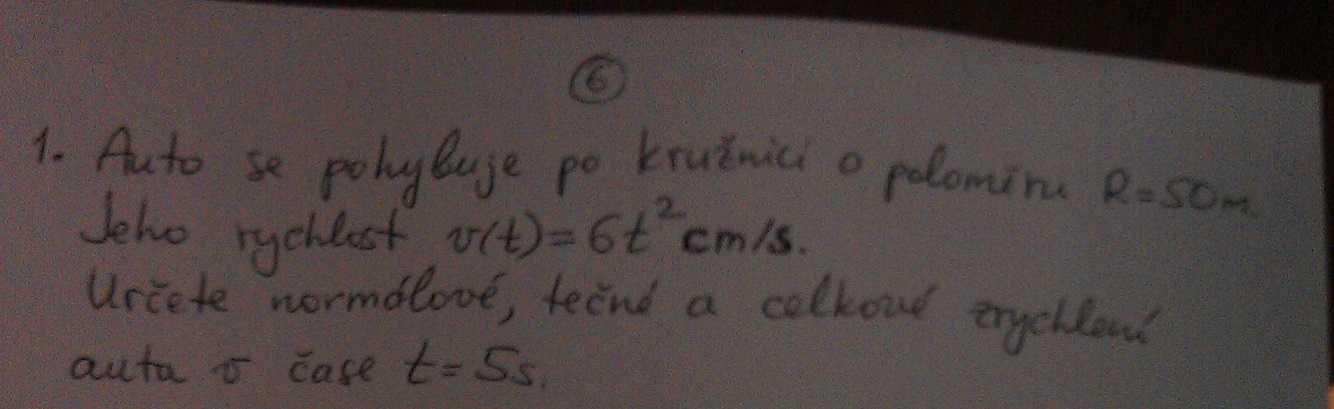 6
1. Auto se pohybuje po kružnici o poloměru R=50m.
Jeho rychlost v(t)=6t² cm/s.
Určete normálové, tečné a celkové zrychlení
auta v čase t=5s.